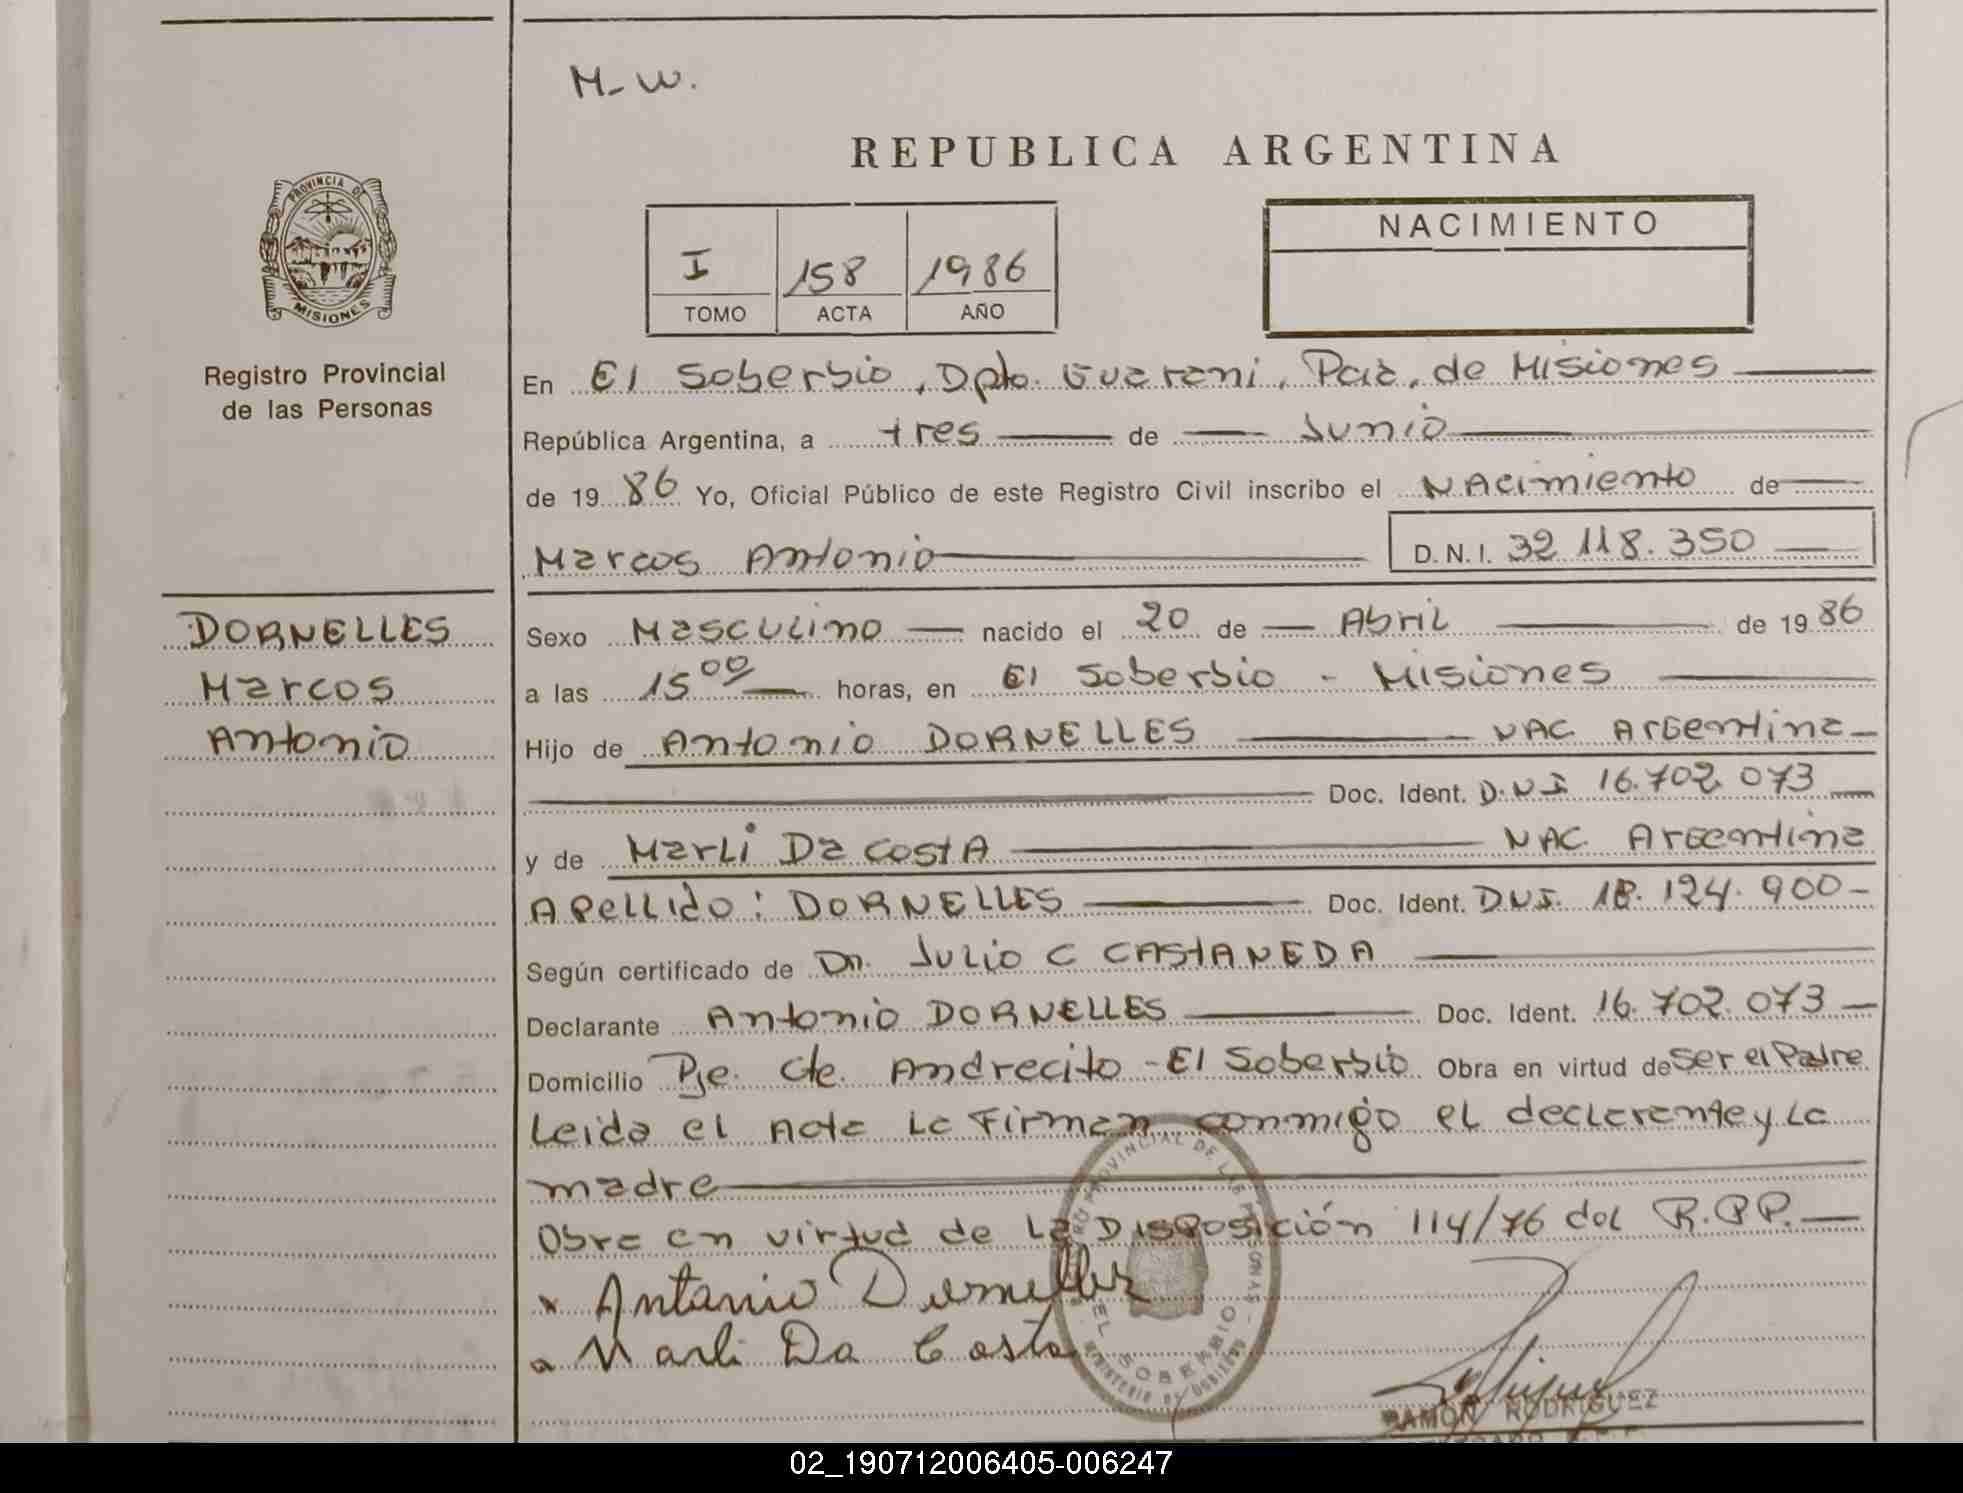 M-W.
REPUBLICA ARGENTINA
PROVINCIA DE
MISIONES
I 158 1986
TOMO ACTA AÑO
NACIMIENTO
Registro Provincial
de las Personas
En El Soberbio, Dpto. Guarani, Pcia, de Misiones
República Argentina, a tres de Junio
de 19 86 Yo, Oficial Público de este Registro Civil inscribo el NAcimiento de
Marcos Antonio D. N. I. 32 118.350
DORNELLES
Marcos
Antonio
Sexo Masculino nacido el 20 de Abril de 19 86
a las 15 00 horas, en El Soberbio - Misiones
Hijo de Antonio DORNELLES NAC Argentina
Doc. Ident. D.N.I 16.702.073
y de Marli Da CostA NAC. Argentina
Apellido: DORNELLES Doc. Ident. D.N.I. 18.124.900
Según certificado de Dr. Julio C CAStANEDA
Declarante Antonio DORNELLES Doc. Ident. 16.702.073
Domicilio Pje. Cte. Andrecito - El Soberbio Obra en virtud de Ser el Padre
Leida el Acta La Firman conmigo el declarante y La
madre
Obra en virtud de La Disposición 114/76 del R.P.P.
x Antonio Dornelles
Marli Da Costa
REGISTRO PROVINCIAL DE LAS PERSONAS
EL SOBERBIO
MINISTERIO DE GOBIERNO
RAMON RODRIGUEZ
02_190712006405-006247